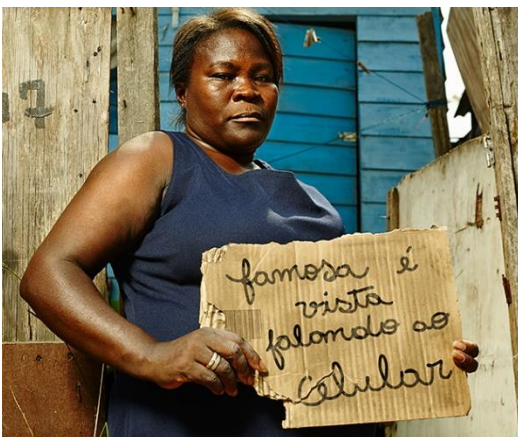 famosa é
vista
falando ao
Celular